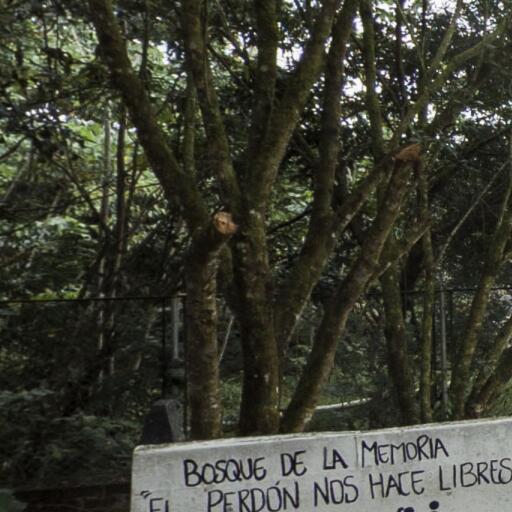 BOSQUE DE LA MEMORIA
"EL PERDÓN NOS HACE LIBRES